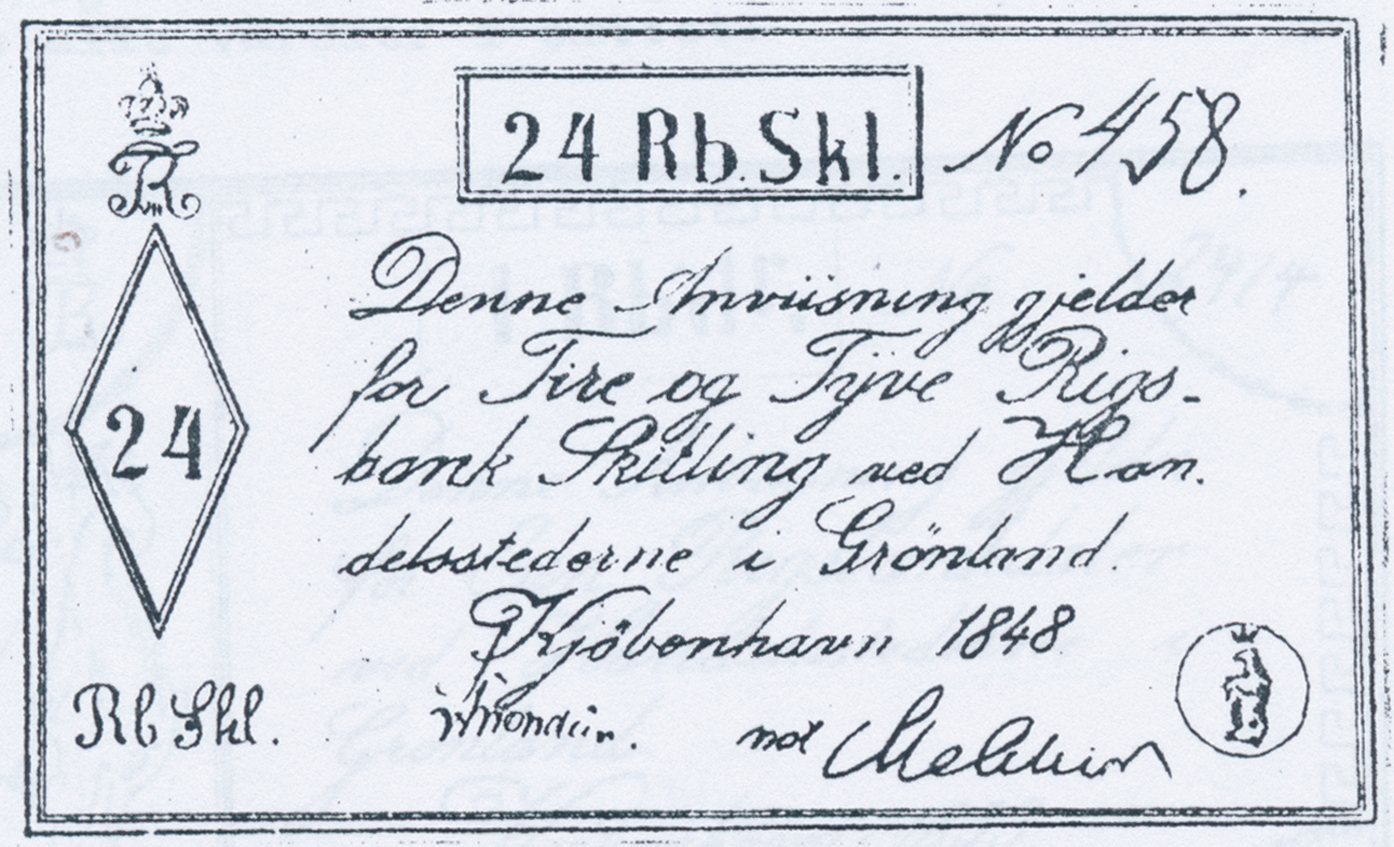 24 Rb Skl. No 458.
Denne Anviisning gjelder
for Fire og Tyve Rigs-
bank Skilling ved Han
delsstederne i Grönland.
Kjöbenhavn 1848
24
Rb Skl. not